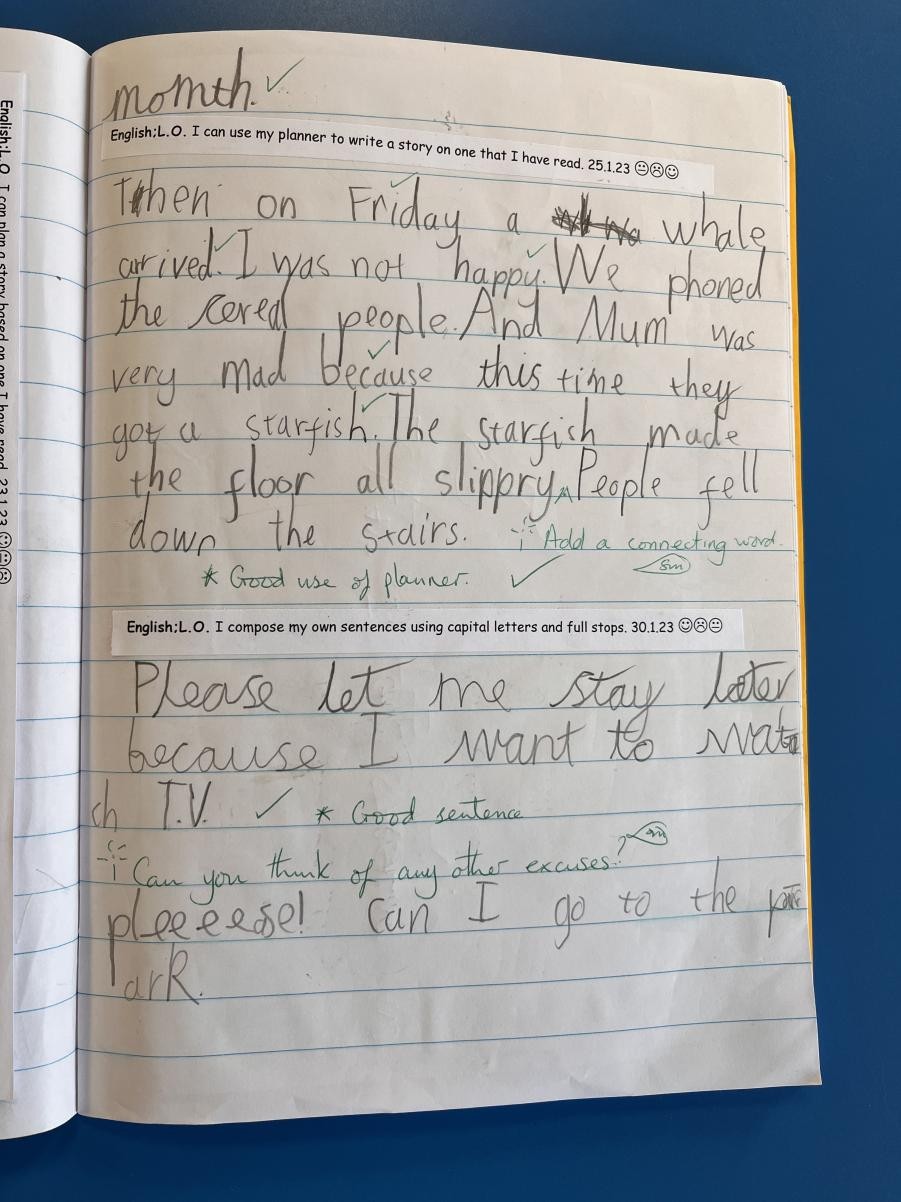 momth.
English;L.O. I can use my planner to write a story on one that I have read. 25.1.23 😐☹☺
Then on Friday a whale
arrived. I was not happy. We phoned
the cered people. And Mum was
very mad because this time they
got a starfish. The starfish made
the floor all slippry People fell
down the stairs.
Add a connecting word.
* Good use of planner.
sm
English;L.O. I compose my own sentences using capital letters and full stops. 30.1.23 ☺☹😐
Please let me stay later
because I want to wat
ch T.V.
* Good sentence
Can you think of any other excuses?
pleeeease! Can I go to the p
ark.
English;L.O. I can plan a story based on one I have read. 23.1.23 ☺😐☹